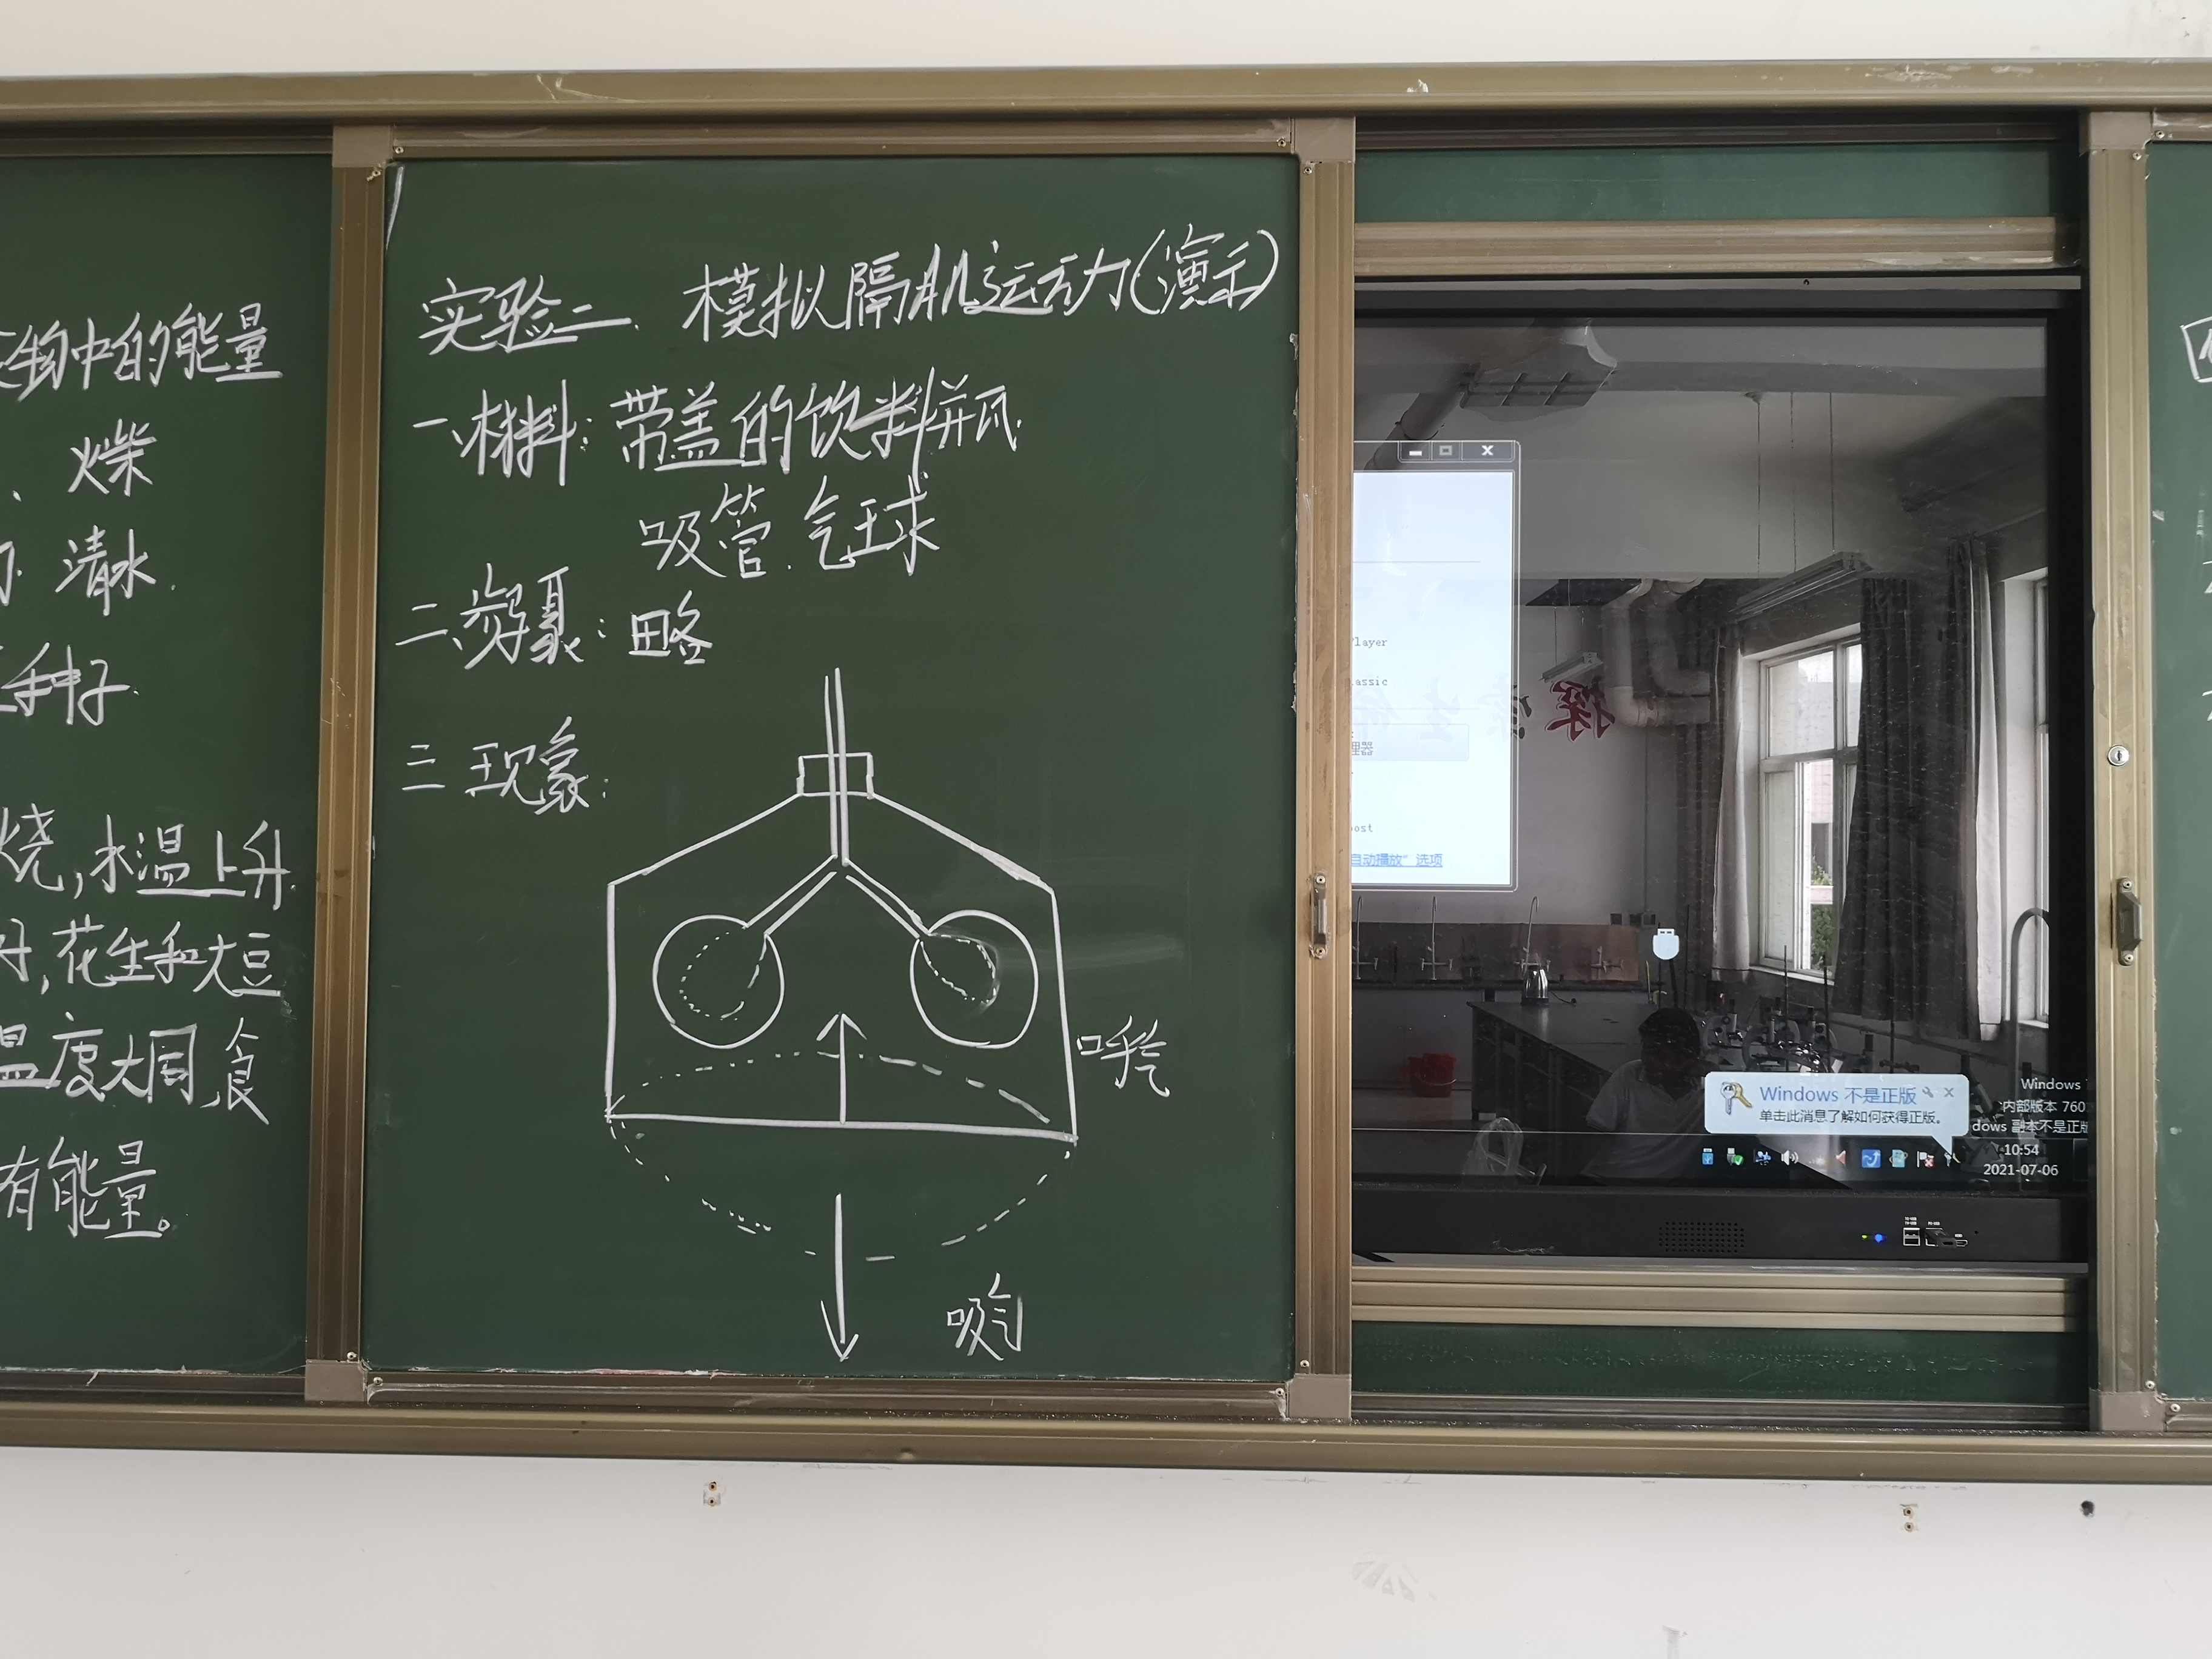 物中的能量
、火柴
清水.
种子.
烧,水温上升.
,花生和大豆
温度大同,食
有能量。
实验二、模拟膈肌运动(演示)
一、材料:带盖的饮料瓶.
吸管.气球
二、步骤:略
三 现象:
呼气
吸气
Player
lassic
理器
oost
自动播放”选项
Windows 不是正版
单击此消息了解如何获得正版。
Windows
内部版本 760
dows 副本不是正版
10:54
2021-07-06